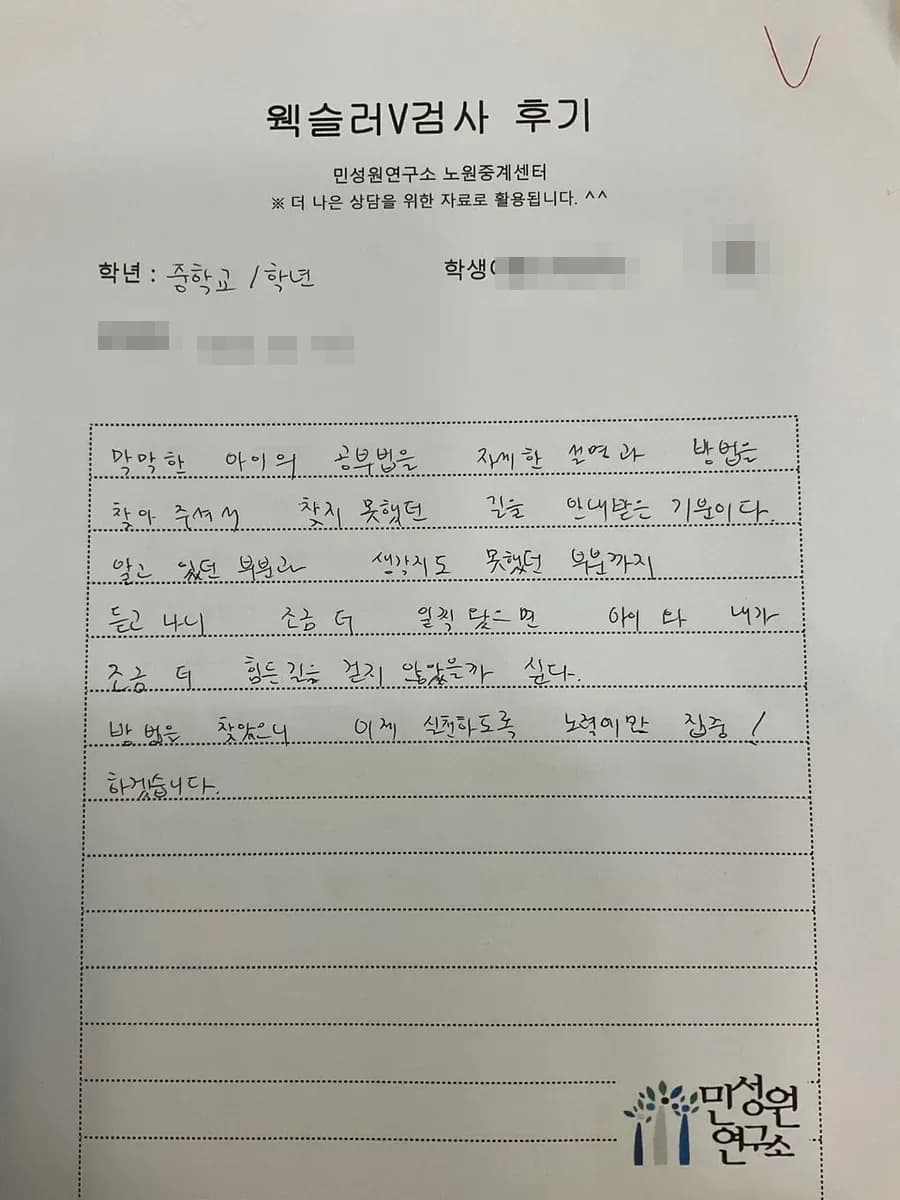 웩슬러V검사 후기
민성원연구소 노원중계센터
※ 더 나은 상담을 위한 자료로 활용됩니다. ^^
학년 : 중학교 1학년 학생
막막한 아이의 공부법을 자세한 설명과 방법을
찾아 주셔서 찾지 못했던 길을 안내받은 기분이다.
알고 있던 부분과 생각지도 못했던 부분까지
듣고 나니 조금 더 일찍 왔으면 아이와 내가
조금 더 힘든길을 걷지 않았을까 싶다.
방법을 찾았으니 이제 실천하도록 노력에만 집중!
하겠습니다.
민성원
연구소